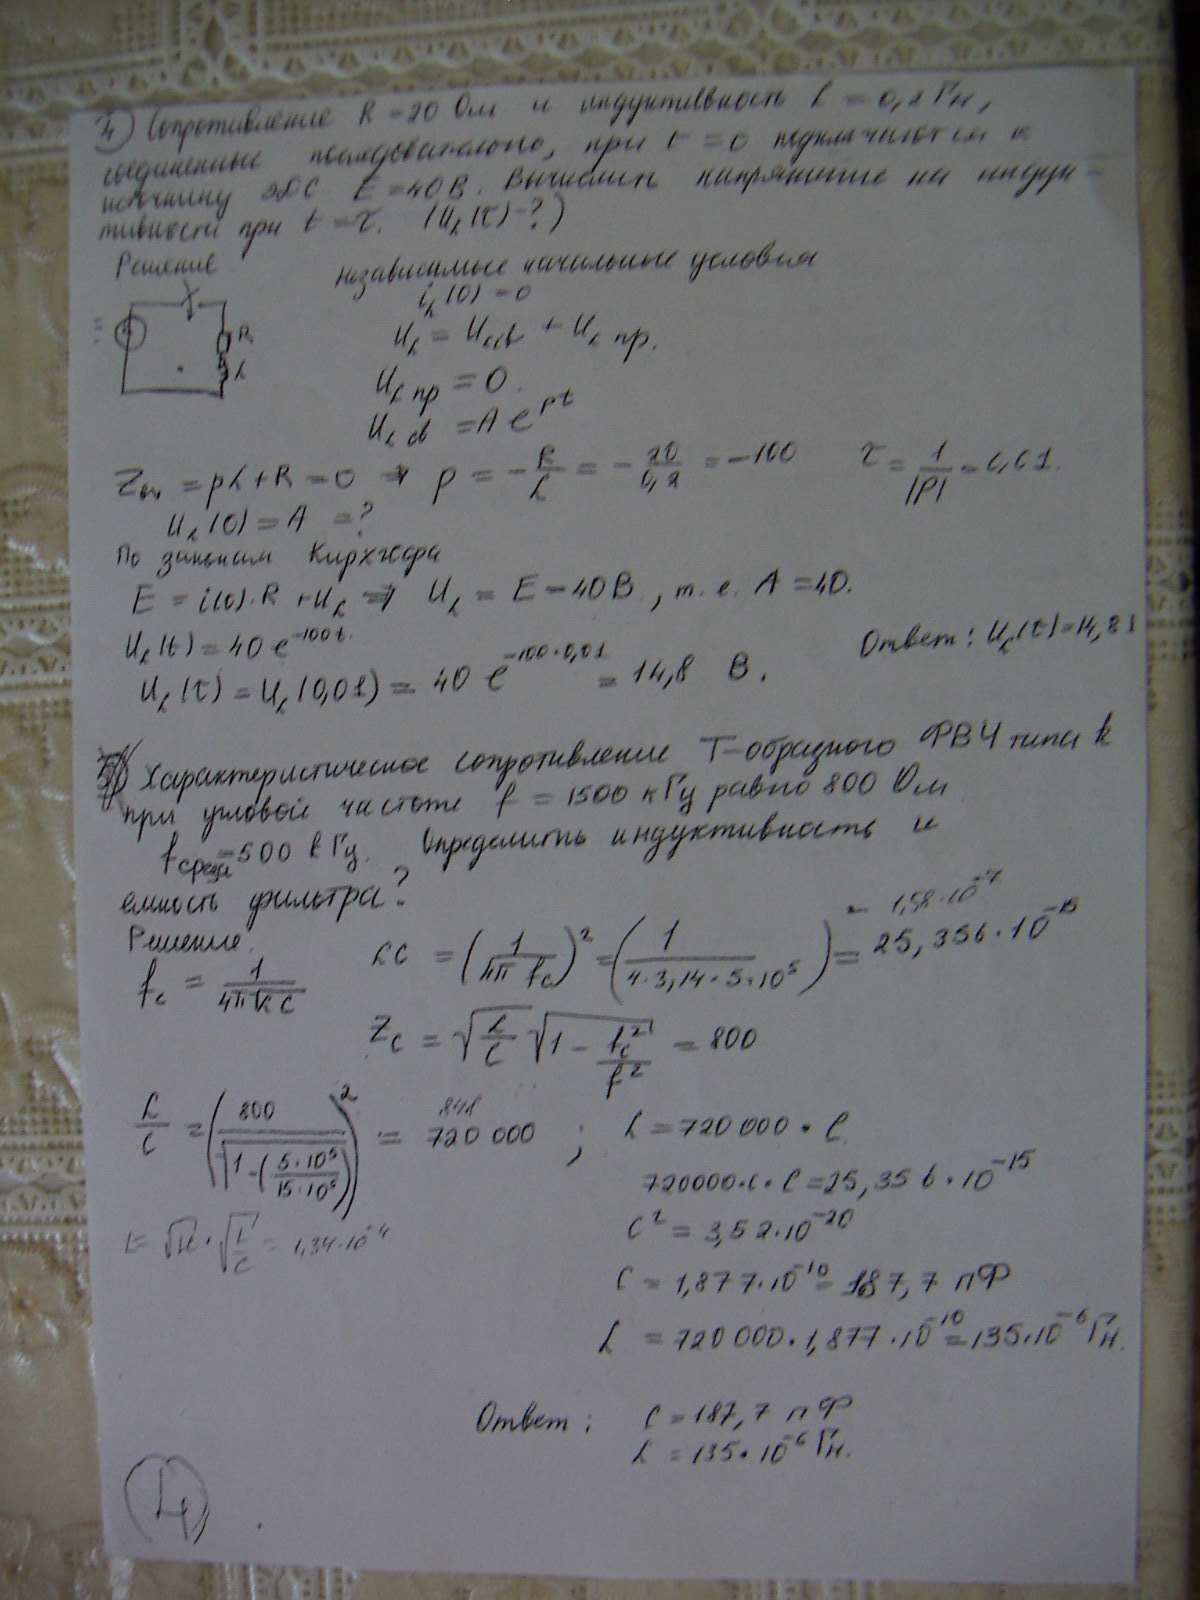 4) Сопротивление R = 20 Ом и индуктивность L = 0,2 Гн,
соединенные последовательно, при t = 0 подключаются к
источнику ЭДС E = 40 В. Вычислить напряжение на индук-
тивности при t = τ. (U_L(τ) - ?)
Решение
независимые начальные условия
i_L(0) = 0
U_L = U_L св + U_L пр.
U_L пр = 0.
U_L св = A e^{pt}
R
L
Z_вх = pL + R = 0 → p = -R/L = -20/0,2 = -100 τ = 1/|P| = 0,01.
U_L(0) = A = ?
По законам Кирхгофа
E = i(0)·R + U_L ⇒ U_L = E = 40 В, т.е. A = 40.
U_L(t) = 40 e^{-100t}.
Ответ: U_L(τ) = 14,8
U_L(τ) = U_L(0,01) = 40 e^{-100·0,01} = 14,8 В.
Характеристическое сопротивление Т-образного ФВЧ типа k
при угловой частоте f = 1500 кГц равно 800 Ом
f среза = 500 кГц. Определить индуктивность и
емкость фильтра?
Решение.
= 1,58·10^{-7}
f_c = 1/(4π√LC) LC = (1/(4π f_c))² = (1/(4·3,14·5·10^5)) = 25,356·10^{-15}
Z_c = √(L/C) √(1 - f_c²/f²) = 800
848
L/C = (800/√(1-(5·10^5/15·10^5)))² = 720 000 ; L = 720 000 · C
720000·C·C = 25,356·10^{-15}
L = √LC · √(L/C) = 1,34·10^{-4}
C² = 3,52·10^{-20}
C = 1,877·10^{-10} = 187,7 пФ
L = 720 000 · 1,877·10^{-10} = 135·10^{-6} Гн.
Ответ: C = 187,7 пФ
L = 135·10^{-6} Гн.
4